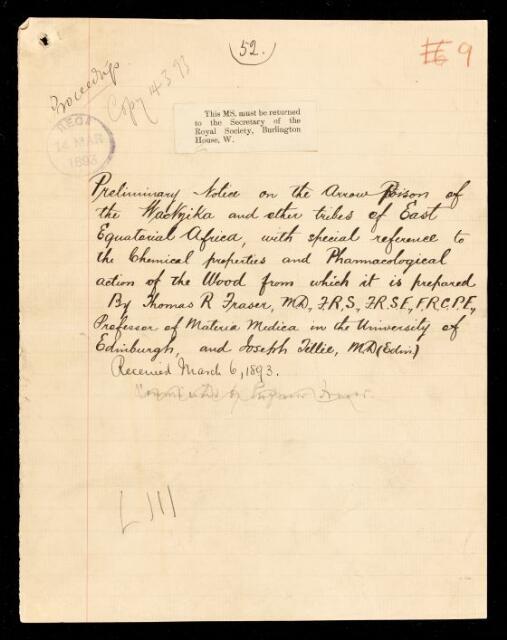 52.
9
Proceedings
Copy 14.3.93
REC
14 MAR
1893
This MS. must be returned
to the Secretary of the
Royal Society, Burlington
House, W.
Preliminary Notice on the Arrow Poison of
the WaNyika and other tribes of East
Equatorial Africa, with special reference to
the Chemical properties and Pharmacological
action of the Wood from which it is prepared
By Thomas R Fraser, M.D., F.R.S., F.R.S.E., F.R.C.P.E.,
Professor of Materia Medica in the University of
Edinburgh, and Joseph Tillie, M.D (Edin)
Received March 6, 1893.